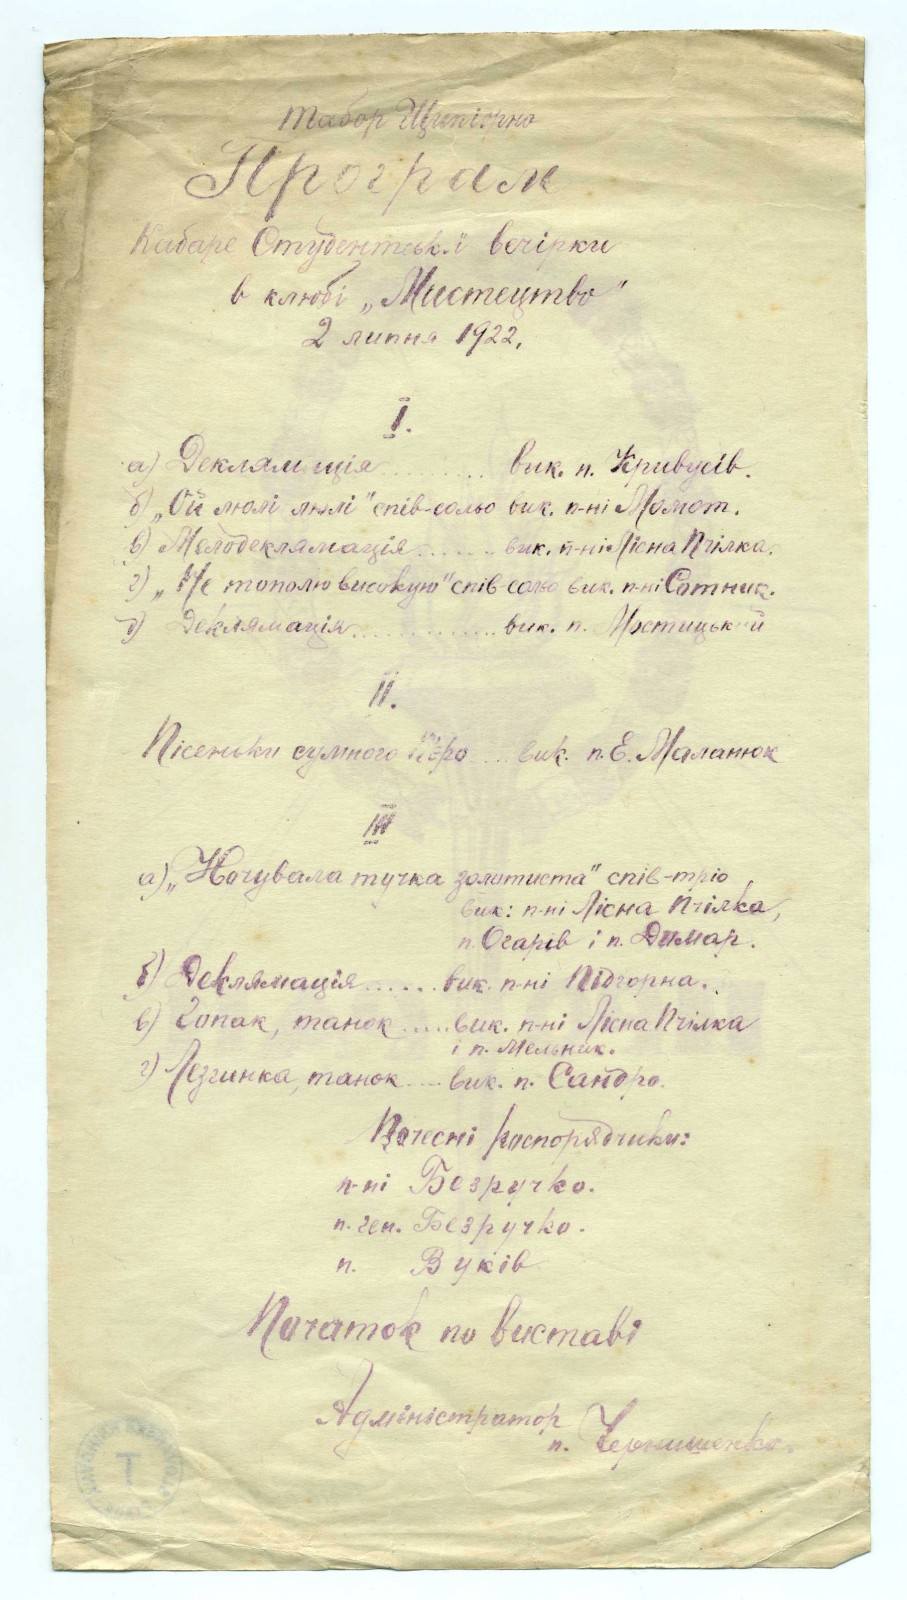 Табор Щипіорно
Програм
Кабаре Студентської вечірки
в клюбі „Мистецтво"
2 липня 1922.
I.
а) Деклямація ........... вик. п. Кривусів.
б) „Ой люлі люлі" спів-сольо вик. п-ні Мамот.
в) Мелодеклямація ....... вик. п-ні Лісна Пчілка.
г) „Не тополю високую" спів-сольо вик. п-ні Сотник.
д) Деклямація ............. вик. п. Мостицький
II.
Пісеньки сумного Пєро ... вик. п. Е. Маланюк
III
а) „Ночувала тучка золотиста" спів-тріо
вик: п-ні Лісна Пчілка,
п. Огарів і п. Димар.
б) Деклямація ...... вик. п-ні Підгорна.
в) Гопак, танок ..... вик. п-ні Лісна Пчілка
і п. Мельник.
г) Лезгинка, танок .... вик. п. Сандро.
Почесні распорядчики:
п-ні Безручко.
п. ген. Безручко.
п. Вуків
Початок по виставі
Адміністратор
п. Чернишенко.
Т